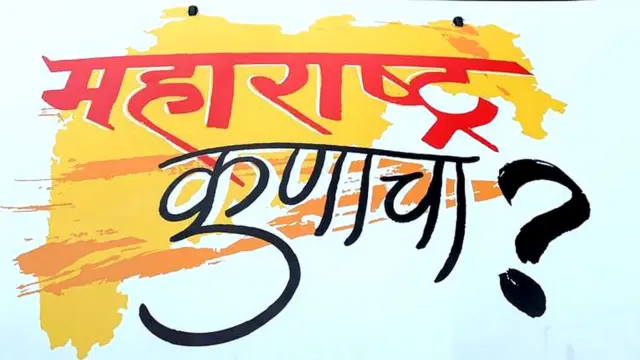 महाराष्ट्र
कुणाचा?